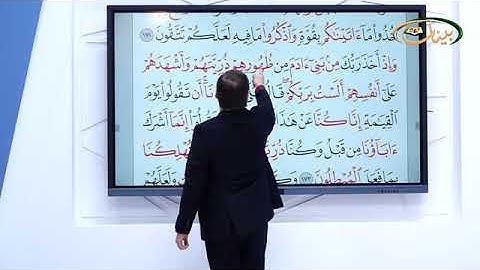 خُذُوا۟ مَآ ءَاتَيْنَٰكُم بِقُوَّةٍ وَٱذْكُرُوا۟ مَا فِيهِ لَعَلَّكُمْ تَتَّقُونَ ١٧١
وَإِذْ أَخَذَ رَبُّكَ مِنۢ بَنِىٓ ءَادَمَ مِن ظُهُورِهِمْ ذُرِّيَّتَهُمْ وَأَشْهَدَهُمْ
عَلَىٰٓ أَنفُسِهِمْ أَلَسْتُ بِرَبِّكُمْ قَالُوا۟ أَن تَقُولُوا۟ يَوْمَ
ٱلْقِيَٰمَةِ إِنَّا كُنَّا عَنْ هَٰذَا إِنَّمَآ أَشْرَكَ
ءَابَآؤُنَا مِن قَبْلُ وَكُنَّا ذُرِّيَّةً أَفَتُهْلِكُنَا
بِمَا فَعَلَ ٱلْمُبْطِلُونَ ١٧٣ وَلَعَلَّهُمْ
بينات